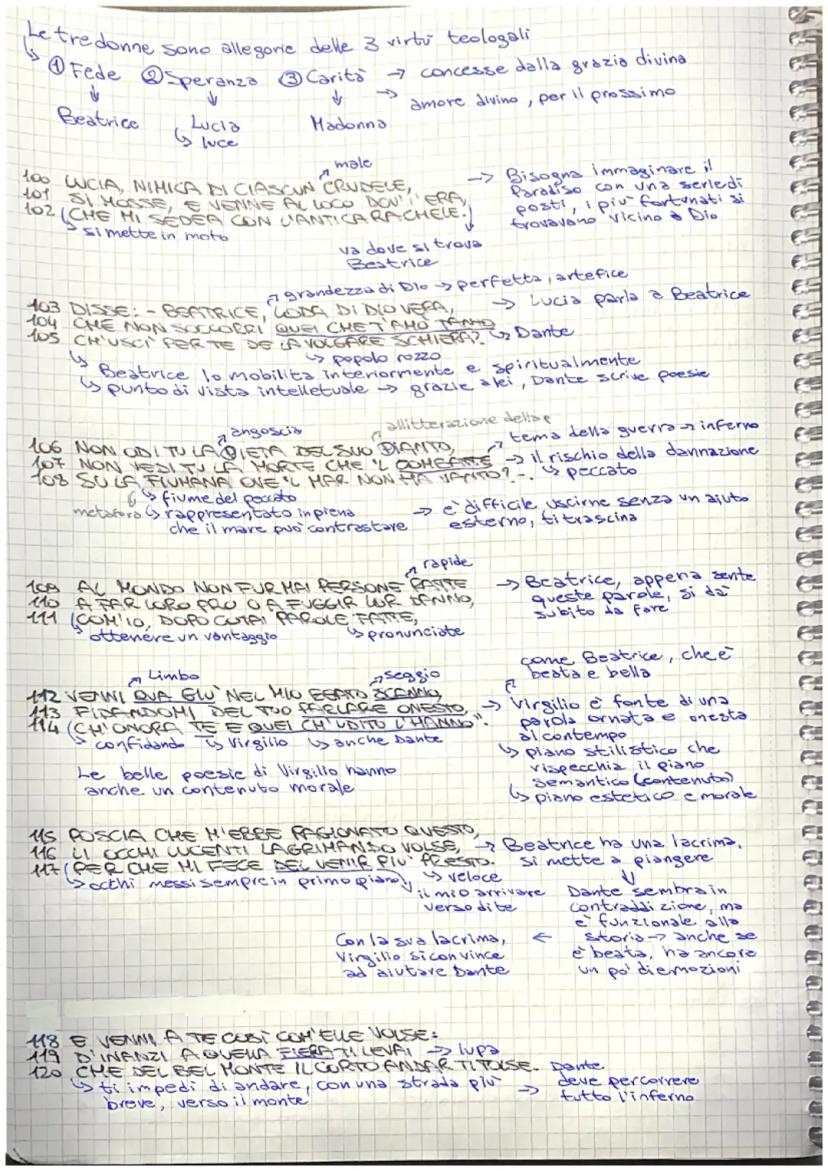 Le tre donne sono allegorie delle 3 virtù teologali
↳ ① Fede ② Speranza ③ Carità → concesse dalla grazia divina
→ amore divino, per il prossimo
Beatrice Lucia Madonna
↳ luce
male
100 LUCIA, NIMICA DI CIASCUN CRUDELE,
101 SI MOSSE, E VENNE AL LOCO DOV'I' ERA,
102 (CHE MI SEDEA CON L'ANTICA RACHELE.)
→ Bisogna immaginare il
Paradiso con una serie di
posti, i più fortunati si
trovavano vicino a Dio
↳ si mette in moto
va dove si trova
Beatrice
grandezza di Dio → perfetta, artefice
103 DISSE: - BEATRICE, LODA DI DIO VERA, → Lucia parla a Beatrice
104 CHE NON SOCCORRI QUEI CHE T'AMÒ TANTO,
105 CH'USCÌ PER TE DE LA VOLGARE SCHIERA? ↳ Dante
↳ popolo rozzo
↳ Beatrice lo mobilita interiormente e spiritualmente
↳ punto di vista intelletuale → grazie a lei, Dante scrive poesie
angoscia
allitterazione della p
106 NON ODI TU LA PIETA DEL SUO PIANTO,
107 NON VEDI TU LA MORTE CHE 'L COMBATTE
108 SU LA FIUMANA OVE 'L MAR NON HA VANTO? -.
tema della guerra → inferno
→ il rischio della dannazione
↳ peccato
↳ fiume del peccato
metafora ↳ rappresentato in piena
che il mare può contrastare
→ è difficile uscirne senza un aiuto
esterno, ti trascina
rapide
109 AL MONDO NON FUR MAI PERSONE RATTE
110 A FAR LORO PRO O A FUGGIR LOR DANNO,
111 (COM'IO, DOPO COTAI PAROLE FATTE,
→ Beatrice, appena sente
queste parole, si dà
subito da fare
↳ ottenere un vantaggio ↳ pronunciate
Limbo seggio
112 VENNI QUA GIÙ NEL MIO BEATO SCANNO,
113 FIDANDOMI DEL TUO PARLARE ONESTO,
114 (CH'ONORA TE E QUEI CH'UDITO L'HANNO".
↳ confidando ↳ Virgilio ↳ anche Dante
come Beatrice, che è
beata e bella
→ Virgilio è fonte di una
parola ornata e onesta
al contempo
↳ piano stilistico che
rispecchia il piano
semantico (contenuto)
↳ piano estetico e morale
Le belle poesie di Virgilio hanno
anche un contenuto morale
115 POSCIA CHE M'EBBE RAGIONATO QUESTO,
116 LI OCCHI LUCENTI LAGRIMANDO VOLSE,
117 (PER CHE MI FECE DEL VENIR PIÙ PRESTO.
→ Beatrice ha una lacrima,
si mette a piangere
↳ occhi messi sempre in primo piano
↳ veloce
il mio arrivare
verso di te
Dante sembra in
contraddizione, ma
è funzionale alla
storia → anche se
è beata, ha ancora
un po' di emozioni
Con la sua lacrima, ←
Virgilio si convince
ad aiutare Dante
118 E VENNI A TE COSÌ COM'ELLE VOLSE:
119 D'INANZI A QUELLA FIERA TI LEVAI → lupa
120 CHE DEL BEL MONTE IL CORTO ANDAR TI TOLSE.
↳ ti impedì di andare, con una strada più
breve, verso il monte
→ Dante
deve percorrere
tutto l'inferno